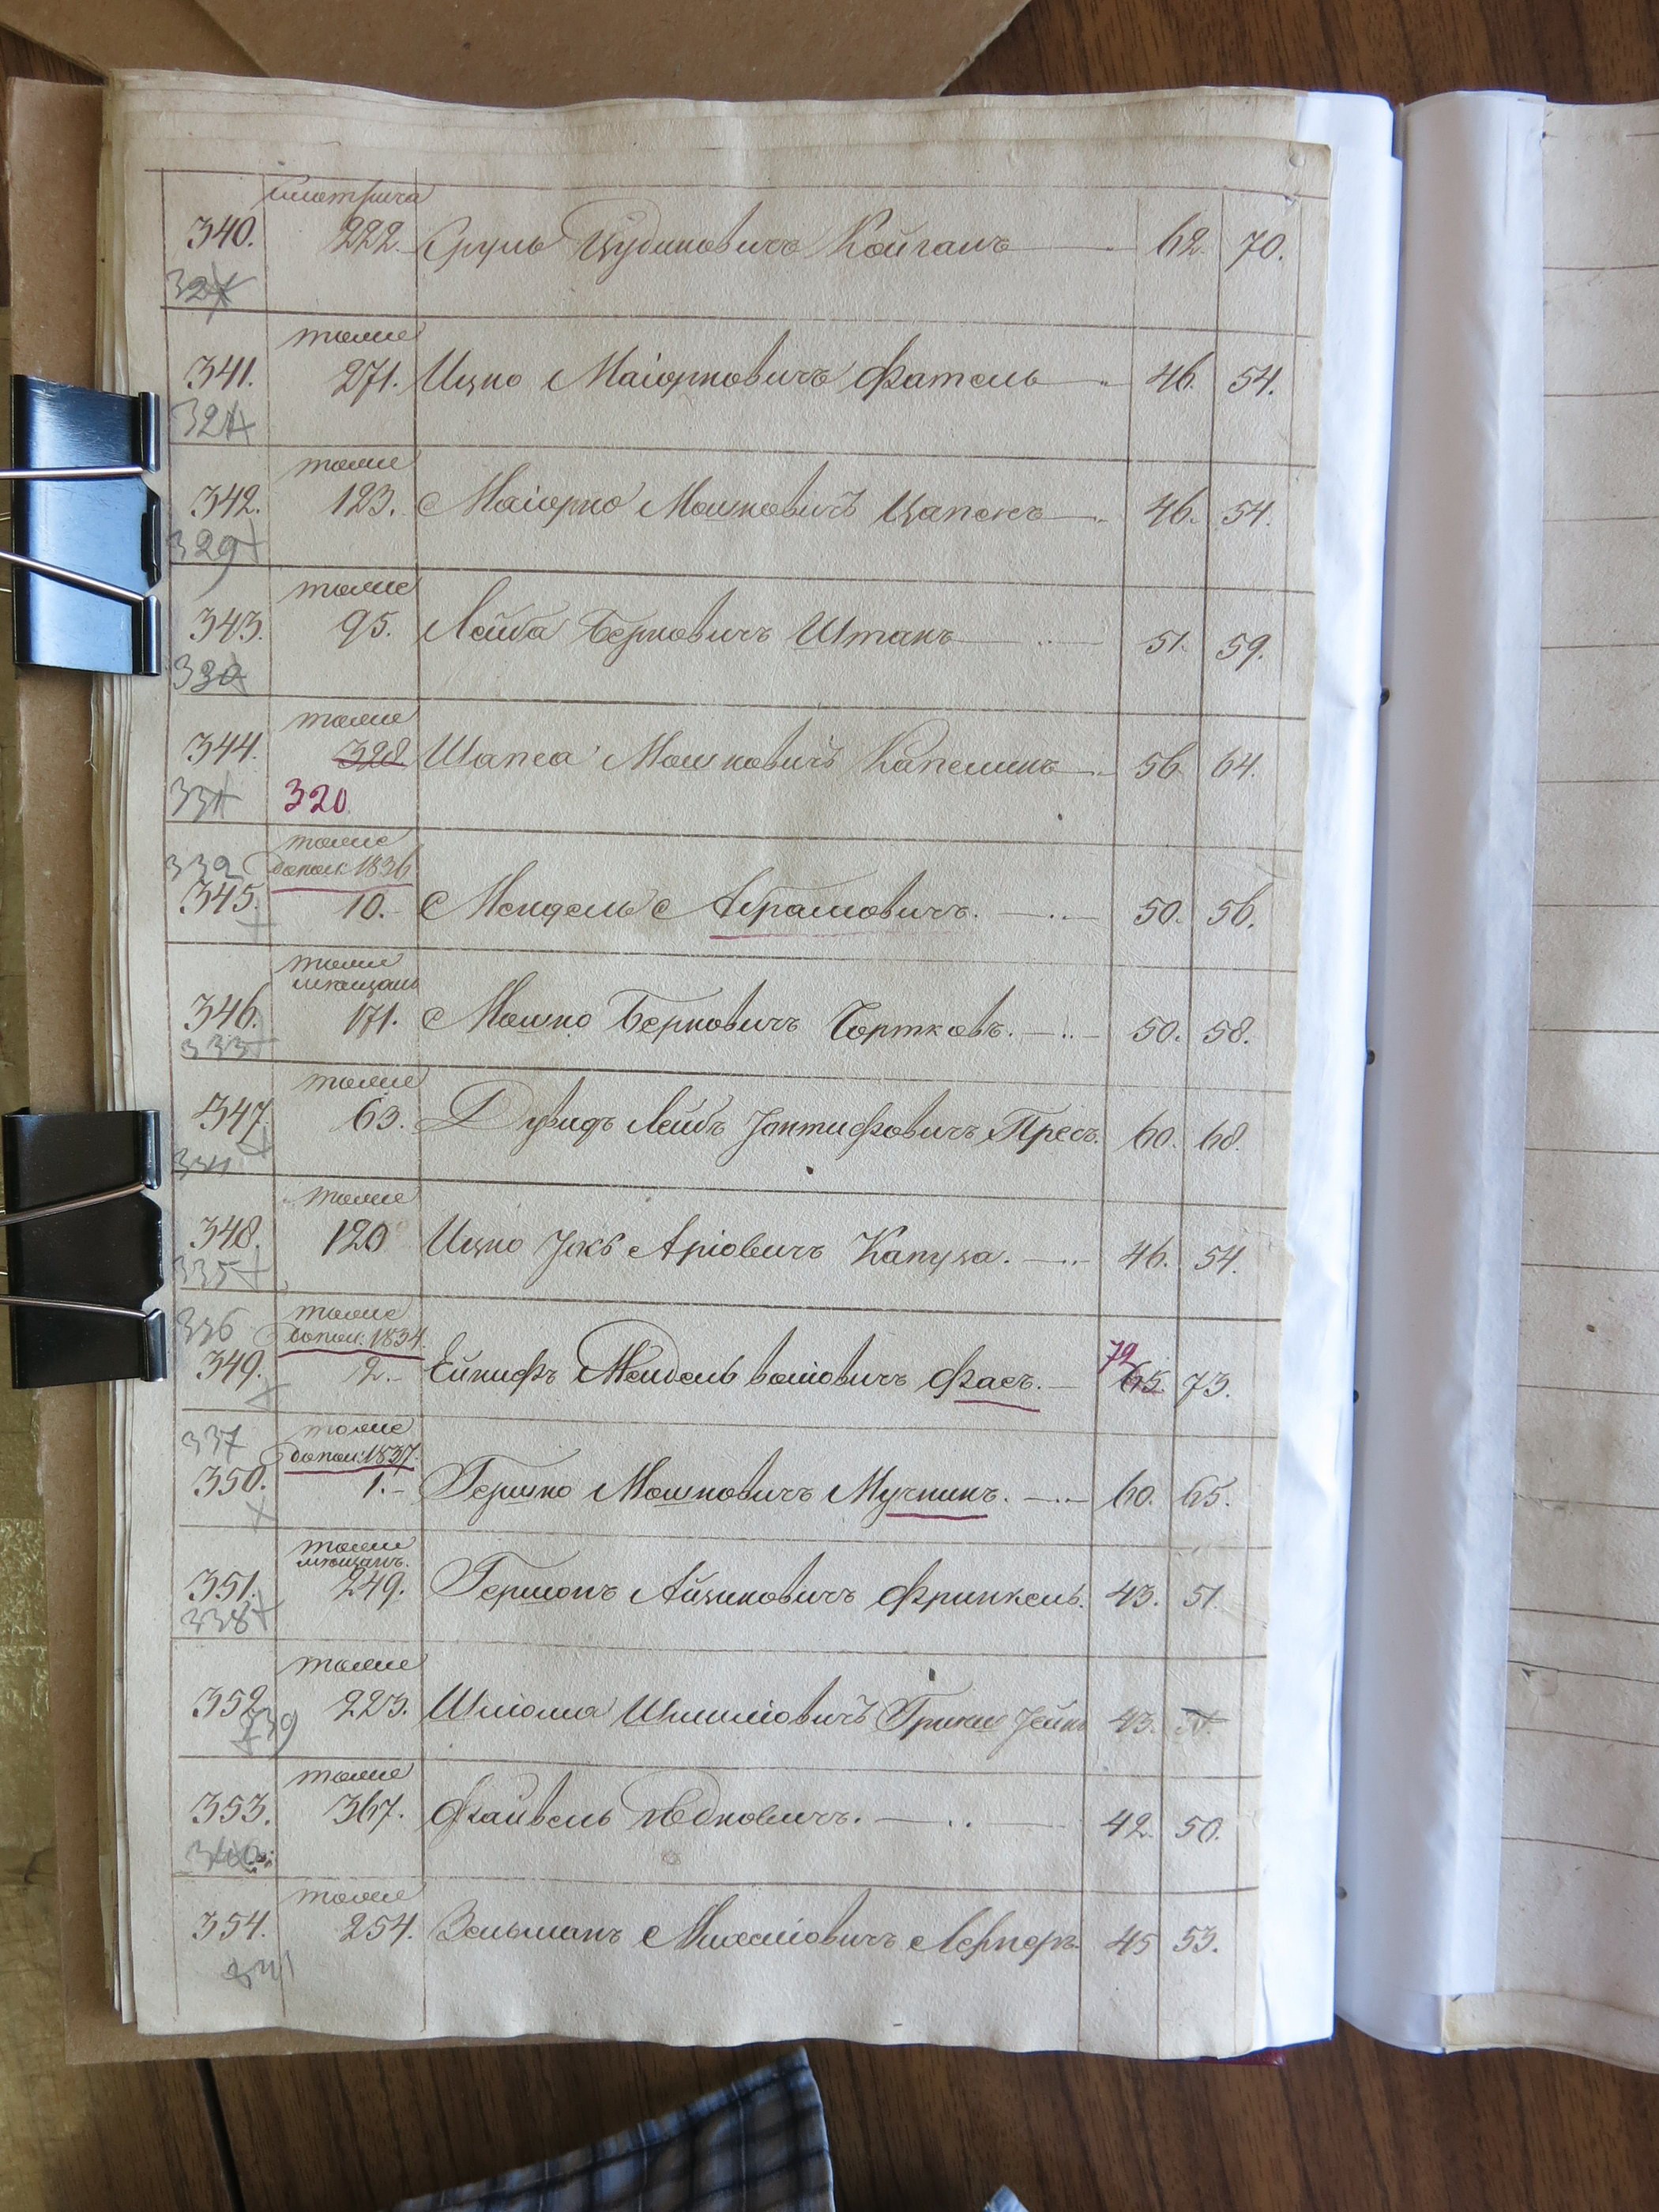 340. 222. Сруль Іцуликовичъ Койганъ 62. 70.
тоже
341. 271. Ицко Маіорковичъ Фатель 46. 54.
тоже
342. 123. Маіорко Мошковичъ Цапекъ 46. 54.
329
тоже
343. 95. Лейба Берковичъ Штакъ 51. 59.
330
тоже
344. 328 Шапса Мошковичъ Капелникъ 56 64.
331 320
332 тоже
допол: 1836
345. 10. Мендель Абрамовичъ. 50. 56.
тоже
мѣщанъ
346. 171. Мошко Берковичъ Чортковъ. 50. 58.
333
тоже
347. 63. Дувидъ Лейбъ Пресъ. 60. 68.
334
тоже
348. 120 Ицко Аріовичъ Капуза. 46. 54.
335
336 тоже
допол: 1834
72
349. 2. Мендель Фасъ. 65. 73.
337 тоже
допол: 1837.
350. 1. Гершко Мошковичъ Мучникъ. 60. 65.
тоже
мѣщанъ.
351. 249. Гершонъ Айзиковичъ Фринкель. 43. 51.
338
тоже
352. 223. Шліома 43.
339
тоже
353. 367. Файвель 42. 50.
340
тоже
354. 254. Зельманъ Михеліовичъ Лернеръ 45 53.
341